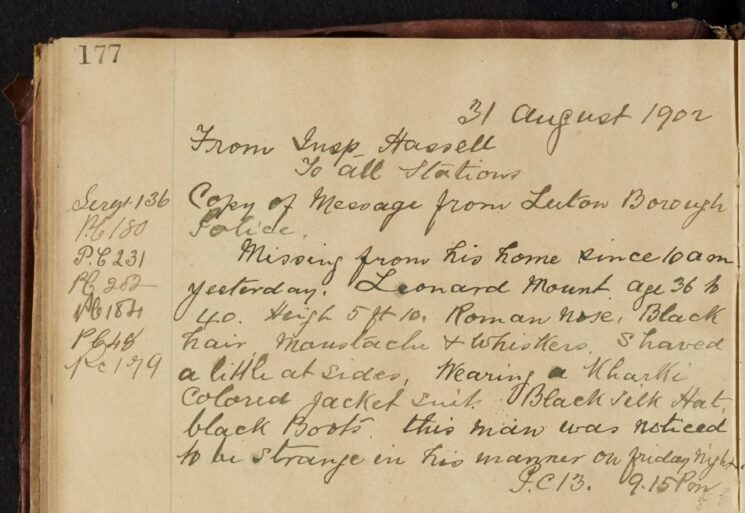 177
31 August 1902
From Insp Hassell
To all Stations
Sergt. 136
P.C 180
P.C 231
P.C 282
P.C 184
P.C 48
P.C 179
Copy of Message from Luton Borough
Police.
Missing from his home since 10 am
yesterday. Leonard Mount age 36 to
40. Heigh 5 ft 10. Roman nose, Black
hair Moustache & Whiskers Shaved
a little at sides, Wearing a Kharki
Colored Jacket suit. Black silk Hat,
black Boots. this man was noticed
to be strange in his manner on friday night
P.C 13. 9.15 Pm